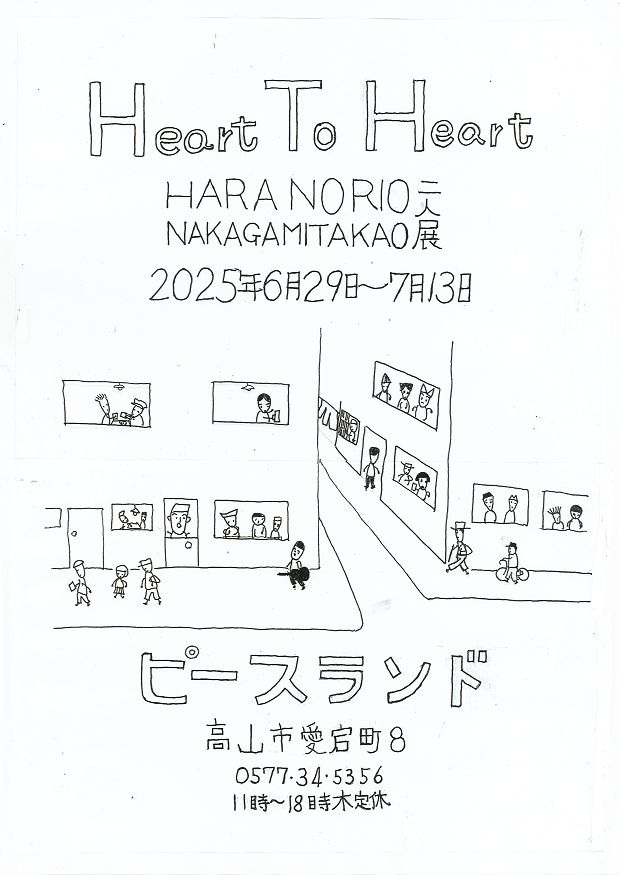 Heart To Heart
HARA NORIO 二人
NAKAGAMITAKAO 展
2025年6月29日～7月13日
ピースランド
高山市愛宕町8
0577・34・5356
11時～18時木定休